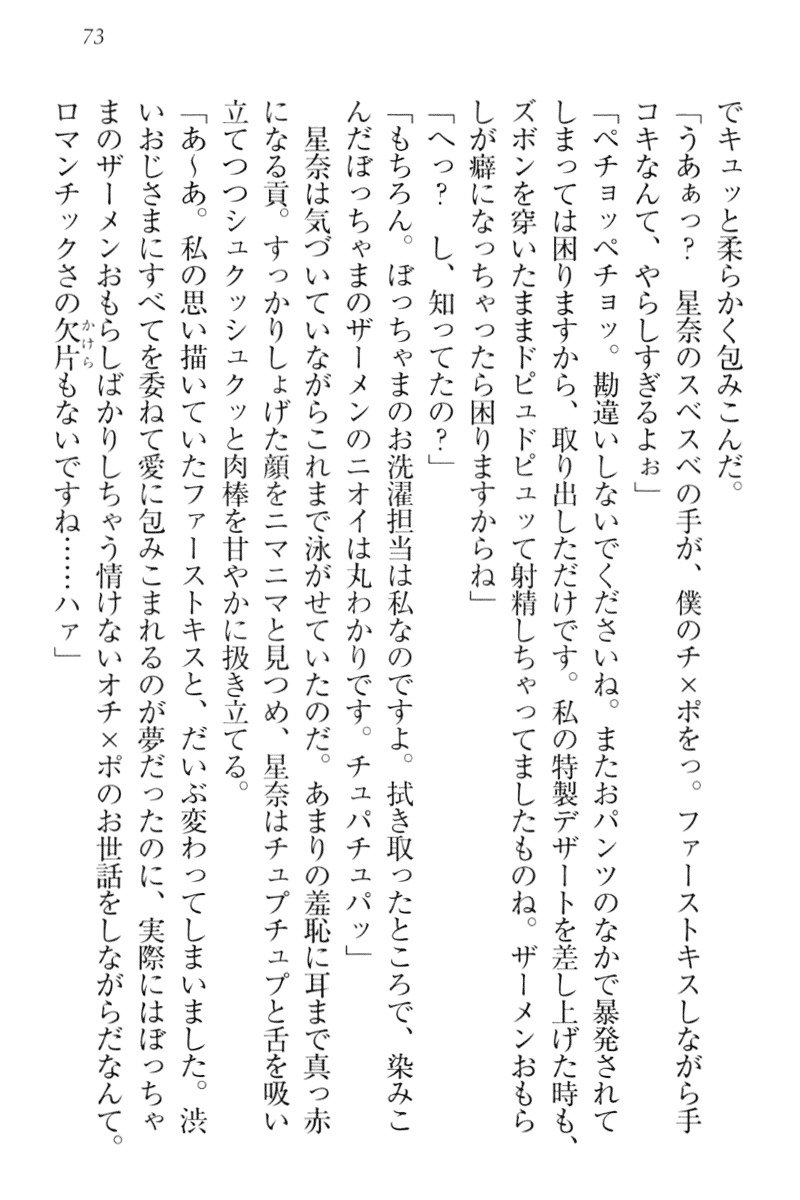 73
でキュッと柔らかく包みこんだ。
「うあぁっ?　星奈のスベスベの手が、僕のチ×ポをっ。ファーストキスしながら手
コキなんて、やらしすぎるよぉ」
「ペチョッペチョッ。勘違いしないでくださいね。またおパンツのなかで暴発されて
しまっては困りますから、取り出しただけです。私の特製デザートを差し上げた時も、
ズボンを穿いたままドピュドピュッて射精しちゃってましたものね。ザーメンおもら
しが癖になっちゃったら困りますからね」
「へっ?　し、知ってたの?」
「もちろん。ぼっちゃまのお洗濯担当は私なのですよ。拭き取ったところで、染みこ
んだぼっちゃまのザーメンのニオイは丸わかりです。チュパチュパッ」
　星奈は気づいていながらこれまで泳がせていたのだ。あまりの羞恥に耳まで真っ赤
になる貢。すっかりしょげた顔をニマニマと見つめ、星奈はチュプチュプと舌を吸い
立てつつシュクッシュクッと肉棒を甘やかに扱き立てる。
「あ～あ。私の思い描いていたファーストキスと、だいぶ変わってしまいました。渋
いおじさまにすべてを委ねて愛に包みこまれるのが夢だったのに、実際にはぼっちゃ
まのザーメンおもらしばかりしちゃう情けないオチ×ポのお世話をしながらだなんて。
ロマンチックさの欠片かけらもないですね……ハァ」